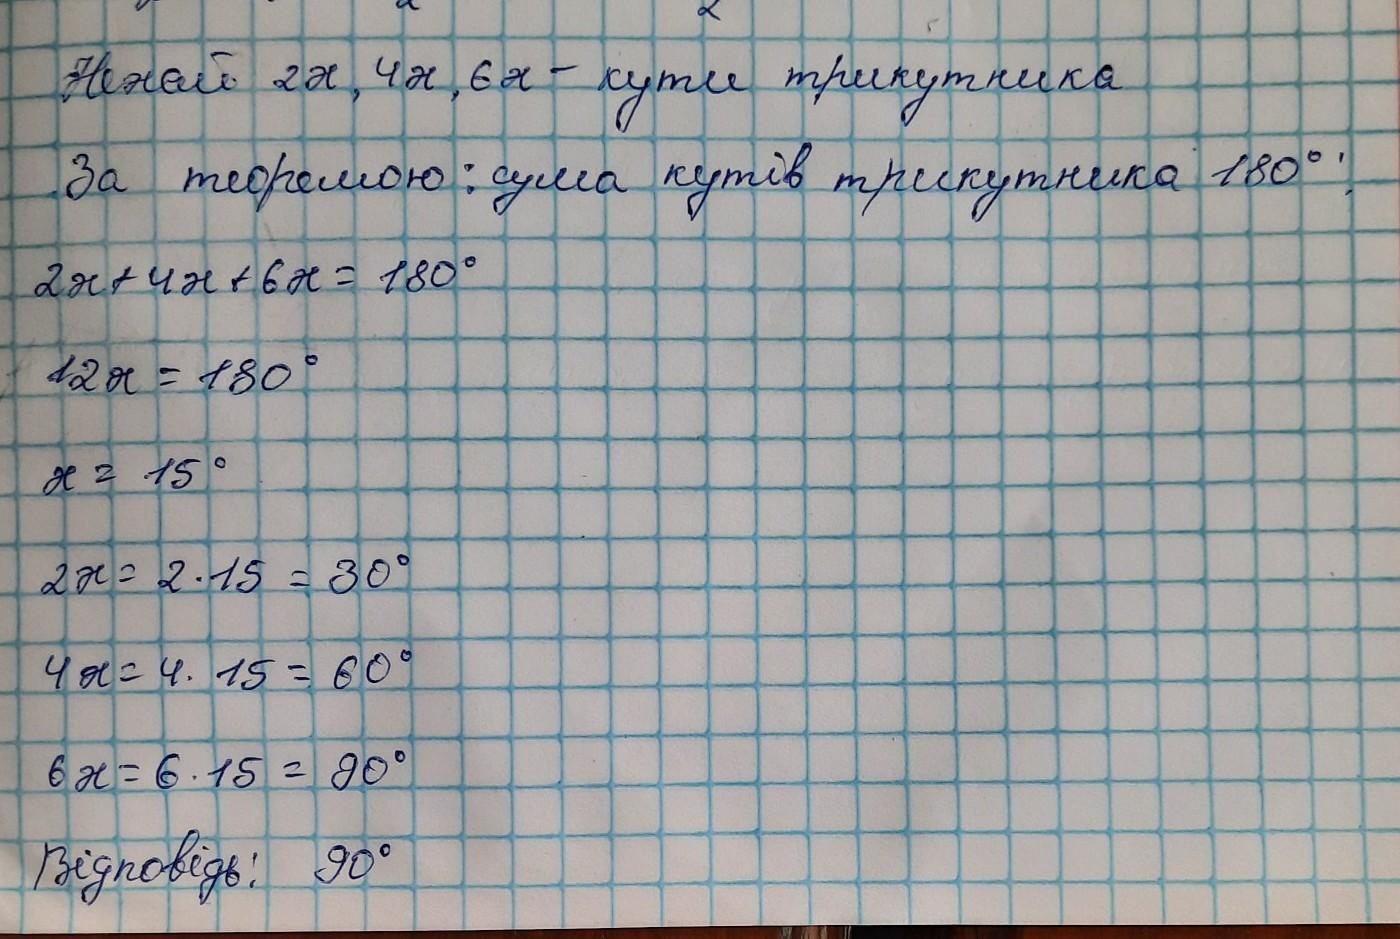 Нехай 2x, 4x, 6x – кути трикутника
За теоремою: сума кутів трикутника 180°:
2x + 4x + 6x = 180°
12x = 180°
x = 15°
2x = 2 · 15 = 30°
4x = 4 · 15 = 60°
6x = 6 · 15 = 90°
Відповідь: 90°